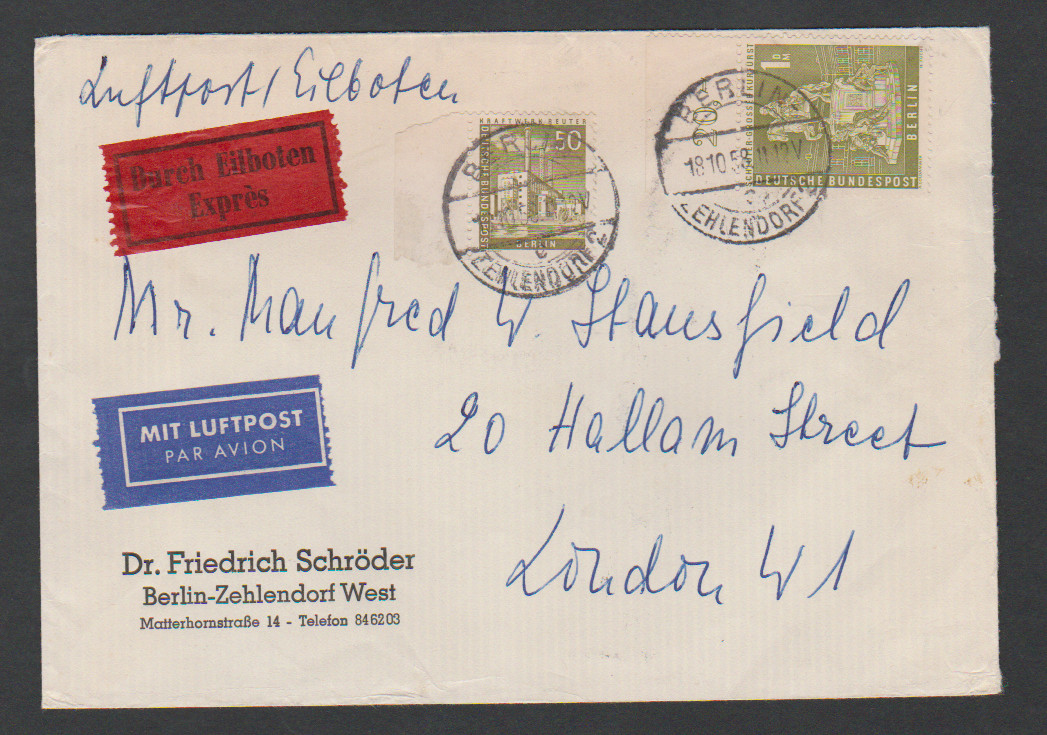 Luftpost / Eilboten
Durch Eilboten
Exprès
KRAFTWERK REUTER
50
DEUTSCHE BUNDESPOST
BERLIN
BERLIN
ZEHLENDORF 4
1 DM
SCHLÜTER · GROSSER KURFÜRST
BERLIN
DEUTSCHE BUNDESPOST
BERLIN
18.10.58.11-12V
ZEHLENDORF
Mr. Manfred W. Stansfield
20 Hallam Street
London W1
MIT LUFTPOST
PAR AVION
Dr. Friedrich Schröder
Berlin-Zehlendorf West
Matterhornstraße 14 - Telefon 846203